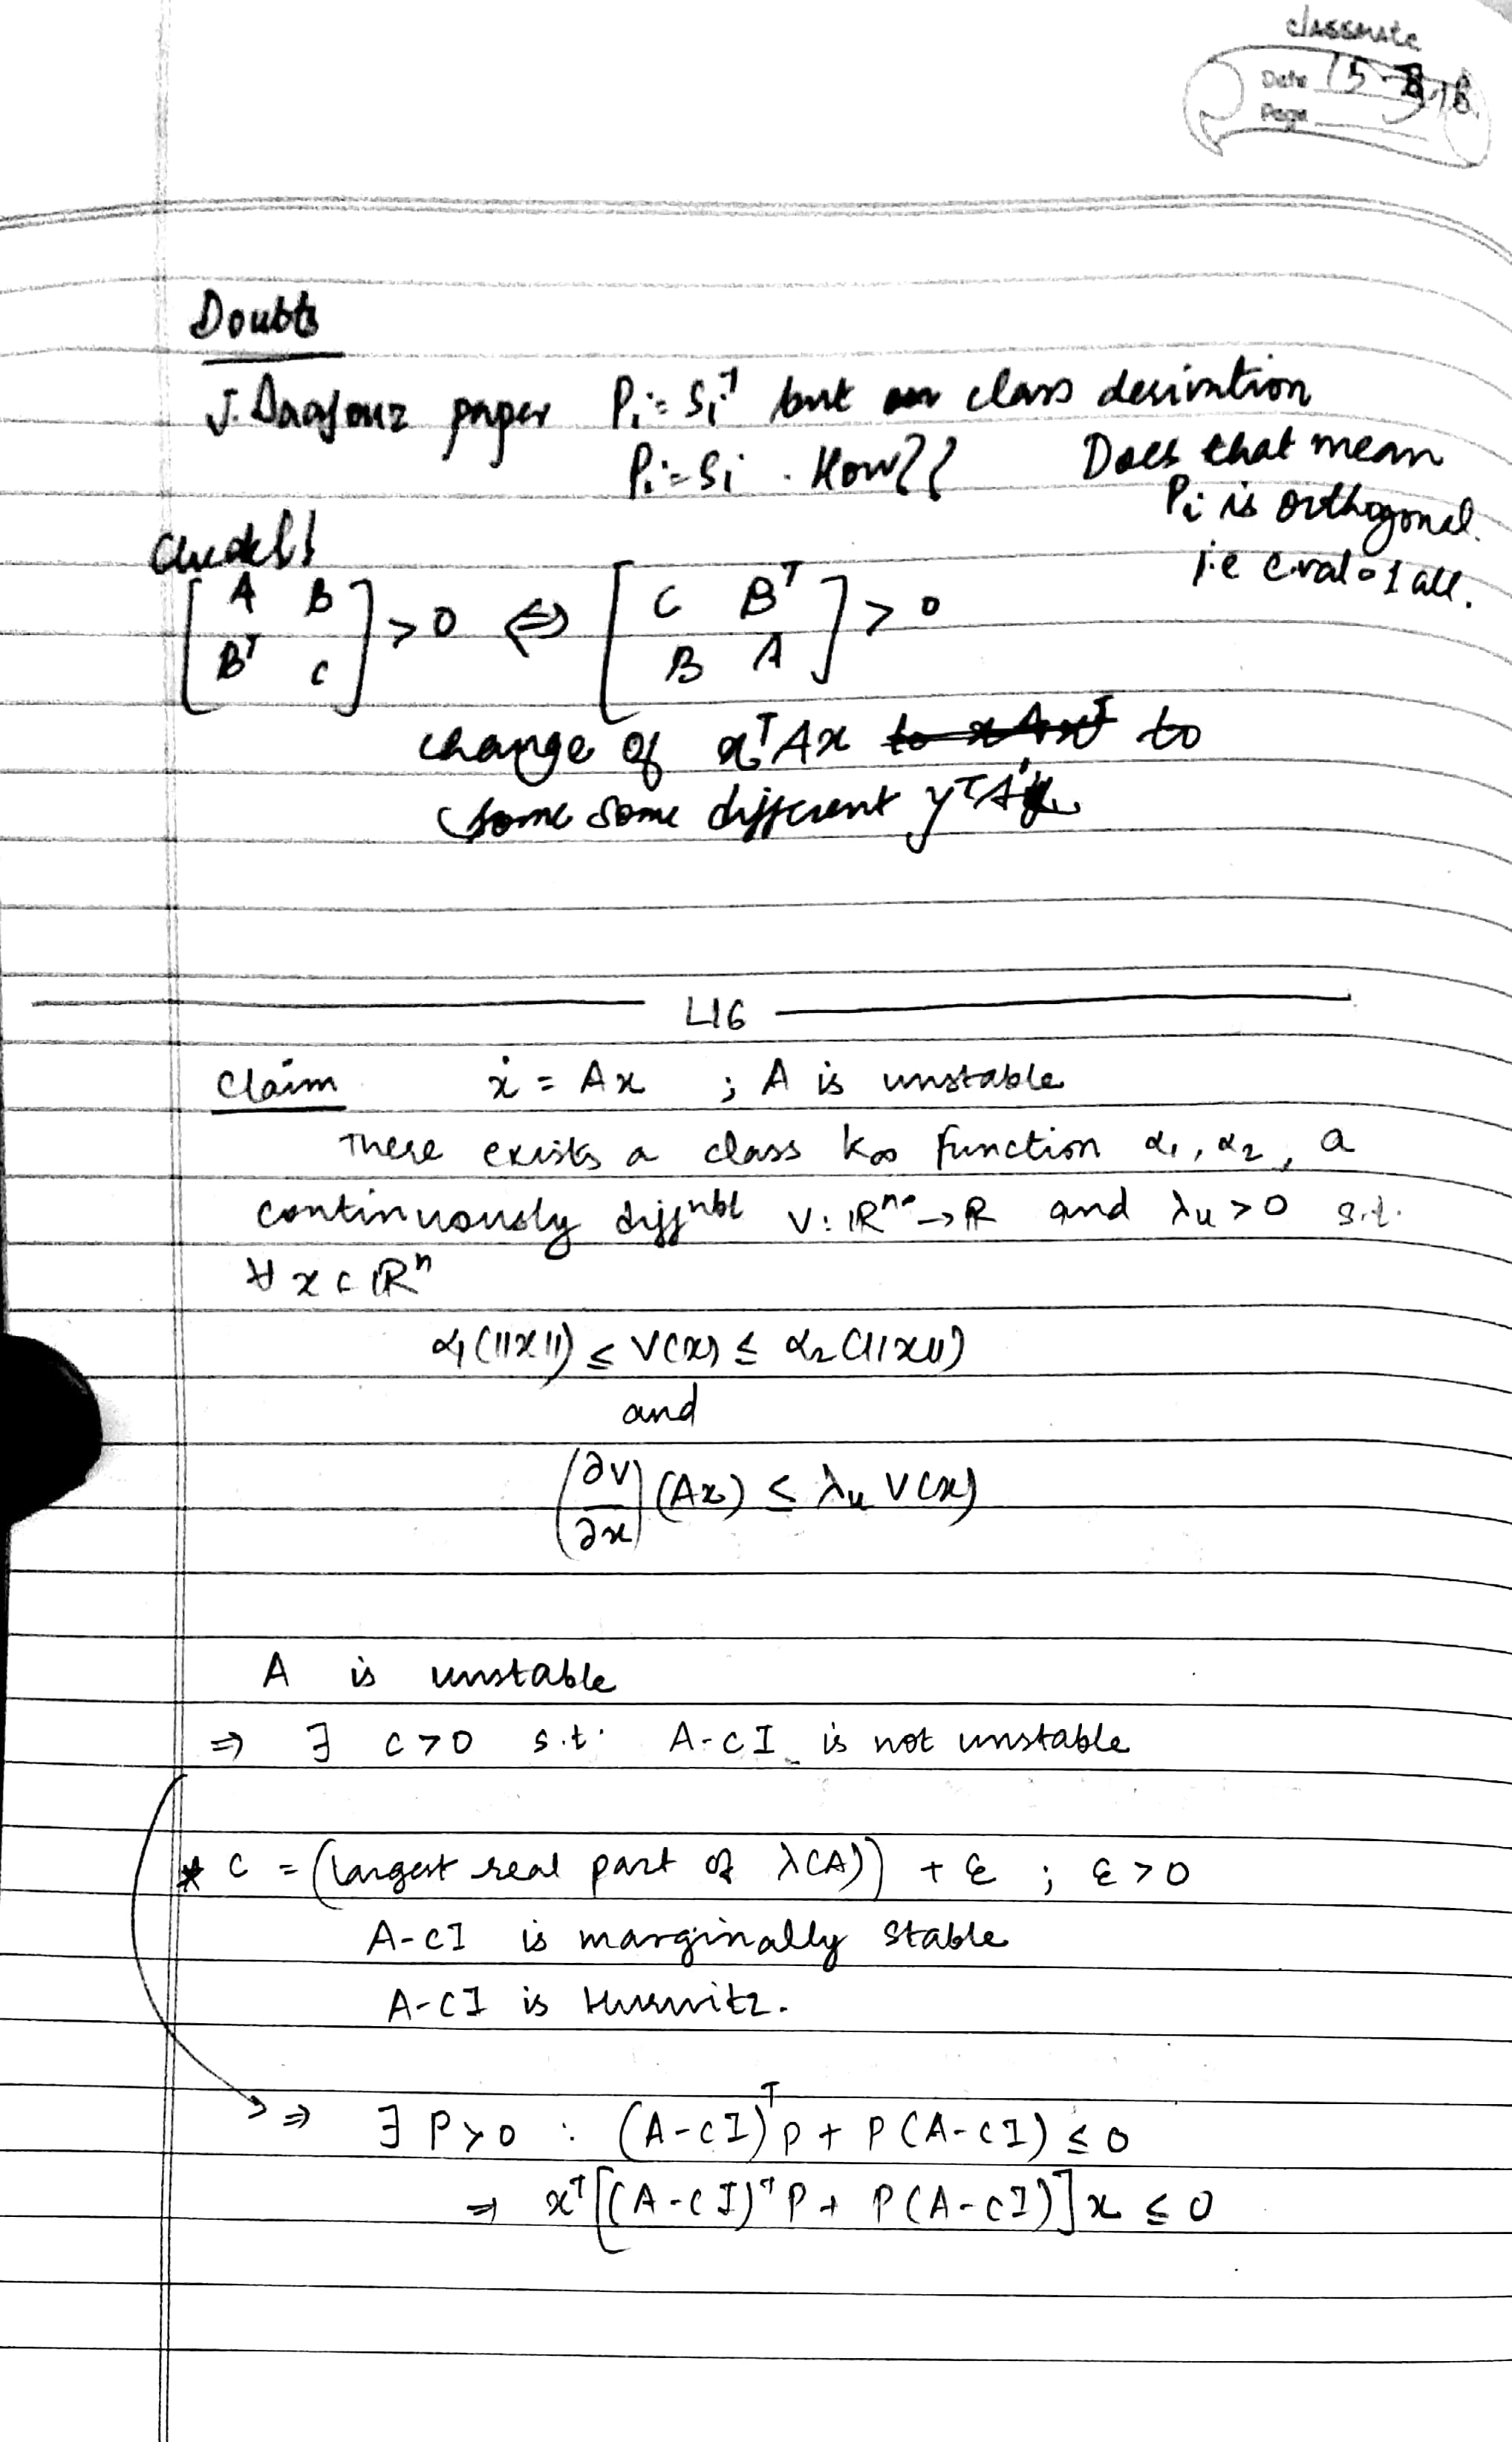 classmate
Date 15
Page
Doubts
J. Daafouz paper Pi = Si⁻¹ but class derivation
Pi = Si . How?? Does that mean
Pi is orthogonal.
i.e e.val = 1 all.
[ A B ; Bᵀ C ] > 0 ⇔ [ C Bᵀ ; B A ] > 0
change of xᵀAx to
some some different yᵀA'y
L16
Claim ẋ = Ax ; A is unstable
There exists a class K∞ function α₁, α₂, a
continuously diffnbl V: ℝⁿ → ℝ and λu > 0 s.t.
∀ x ∈ ℝⁿ
α₁(||x||) ≤ V(x) ≤ α₂(||x||)
and
(∂V/∂x) (Ax) ≤ λu V(x)
A is unstable
⇒ ∃ c > 0 s.t. A-cI is not unstable
* c = (largest real part of λ(A)) + ε ; ε > 0
A-cI is marginally stable
A-cI is Hurwitz.
⇒ ∃ P ≻ 0 : (A-cI)ᵀP + P(A-cI) ≤ 0
⇒ xᵀ[(A-cI)ᵀP + P(A-cI)]x ≤ 0